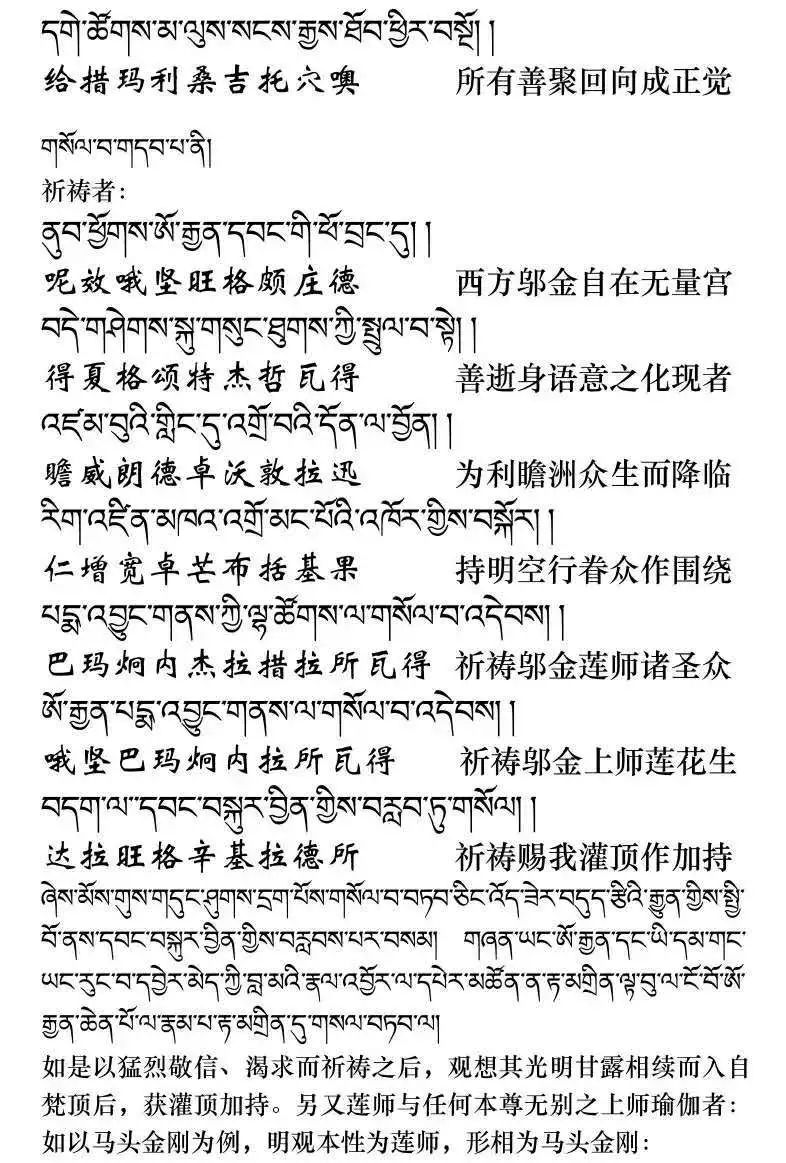 དགེ་ཚོགས་མ་ལུས་སངས་རྒྱས་ཐོབ་ཕྱིར་བསྔོ། །
给措玛利桑吉托穴噢 所有善聚回向成正觉
གསོལ་བ་གདབ་པ་ནི།
祈祷者：
ནུབ་ཕྱོགས་ཨོ་རྒྱན་དབང་གི་ཕོ་བྲང་དུ། །
呢效哦坚旺格颇庄德 西方邬金自在无量宫
བདེ་གཤེགས་སྐུ་གསུང་ཐུགས་ཀྱི་སྤྲུལ་བ་སྟེ། །
得夏格颂特杰哲瓦得 善逝身语意之化现者
འཛམ་བུའི་གླིང་དུ་འགྲོ་བའི་དོན་ལ་བྱོན། །
瞻威朗德卓沃敦拉迅 为利瞻洲众生而降临
རིག་འཛིན་མཁའ་འགྲོ་མང་པོའི་འཁོར་གྱིས་བསྐོར། །
仁增宽卓芒布括基果 持明空行眷众作围绕
པདྨ་འབྱུང་གནས་ཀྱི་ལྷ་ཚོགས་ལ་གསོལ་བ་འདེབས། །
巴玛炯内杰拉措拉所瓦得 祈祷邬金莲师诸圣众
ཨོ་རྒྱན་པདྨ་འབྱུང་གནས་ལ་གསོལ་བ་འདེབས། །
哦坚巴玛炯内拉所瓦得 祈祷邬金上师莲花生
བདག་ལ་དབང་བསྐུར་བྱིན་གྱིས་བརླབ་ཏུ་གསོལ། །
达拉旺格辛基拉德所 祈祷赐我灌顶作加持
ཞེས་མོས་གུས་གདུང་ཤུགས་དྲག་པོས་གསོལ་བ་བཏབ་ཅིང་འོད་ཟེར་བདུད་རྩིའི་རྒྱུན་གྱིས་སྤྱི་
བོ་ནས་དབང་བསྐུར་བྱིན་གྱིས་བརླབས་པར་བསམ། གཞན་ཡང་ཨོ་རྒྱན་དང་ཡི་དམ་གང་
ཡང་རུང་བ་དབྱེར་མེད་ཀྱི་བླ་མའི་རྣལ་འབྱོར་ལ་དཔེར་མཚོན་ན་རྟ་མགྲིན་ལྟ་བུ་ལ་ངོ་བོ་ཨོ་
རྒྱན་ཆེན་པོ་ལ་རྣམ་པ་རྟ་མགྲིན་དུ་གསལ་བཏབ་ལ།
如是以猛烈敬信、渴求而祈祷之后，观想其光明甘露相续而入自
梵顶后，获灌顶加持。另又莲师与任何本尊无别之上师瑜伽者：
如以马头金刚为例，明观本性为莲师，形相为马头金刚：